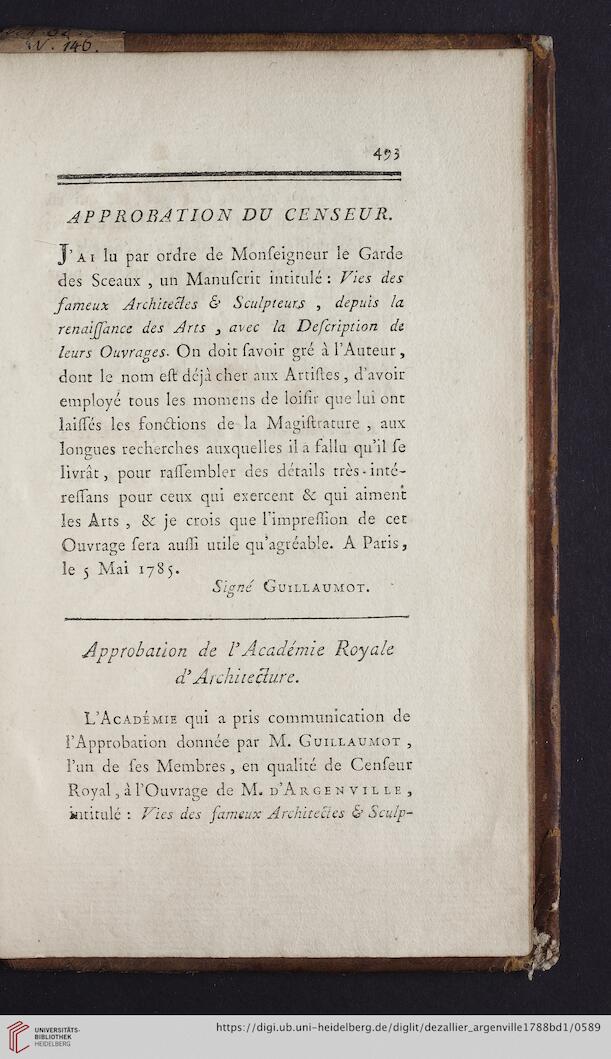 N. 146.
493
APPROBATION DU CENSEUR.
J'AI lu par ordre de Monſeigneur le Garde
des Sceaux , un Manuſcrit intitulé : Vies des
fameux Architectes & Sculpteurs , depuis la
renaiſſance des Arts , avec la Deſcription de
leurs Ouvrages. On doit ſavoir gré à l'Auteur,
dont le nom eſt déjà cher aux Artiſtes , d'avoir
employé tous les momens de loiſir que lui ont
laiſſés les fonctions de la Magiſtrature , aux
longues recherches auxquelles il a fallu qu'il ſe
livrât , pour raſſembler des détails très-inté-
reſſans pour ceux qui exercent & qui aiment
les Arts , & je crois que l'impreſſion de cet
Ouvrage ſera auſſi utile qu'agréable. A Paris,
le 5 Mai 1785.
Signé GUILLAUMOT.
Approbation de l'Académie Royale
d'Architecture.
L'ACADÉMIE qui a pris communication de
l'Approbation donnée par M. GUILLAUMOT ,
l'un de ſes Membres , en qualité de Cenſeur
Royal , à l'Ouvrage de M. D'ARGENVILLE ,
intitulé : Vies des fameux Architectes & Sculp-
UNIVERSITÄTS-
BIBLIOTHEK
HEIDELBERG
https://digi.ub.uni-heidelberg.de/diglit/dezallier_argenville1788bd1/0589